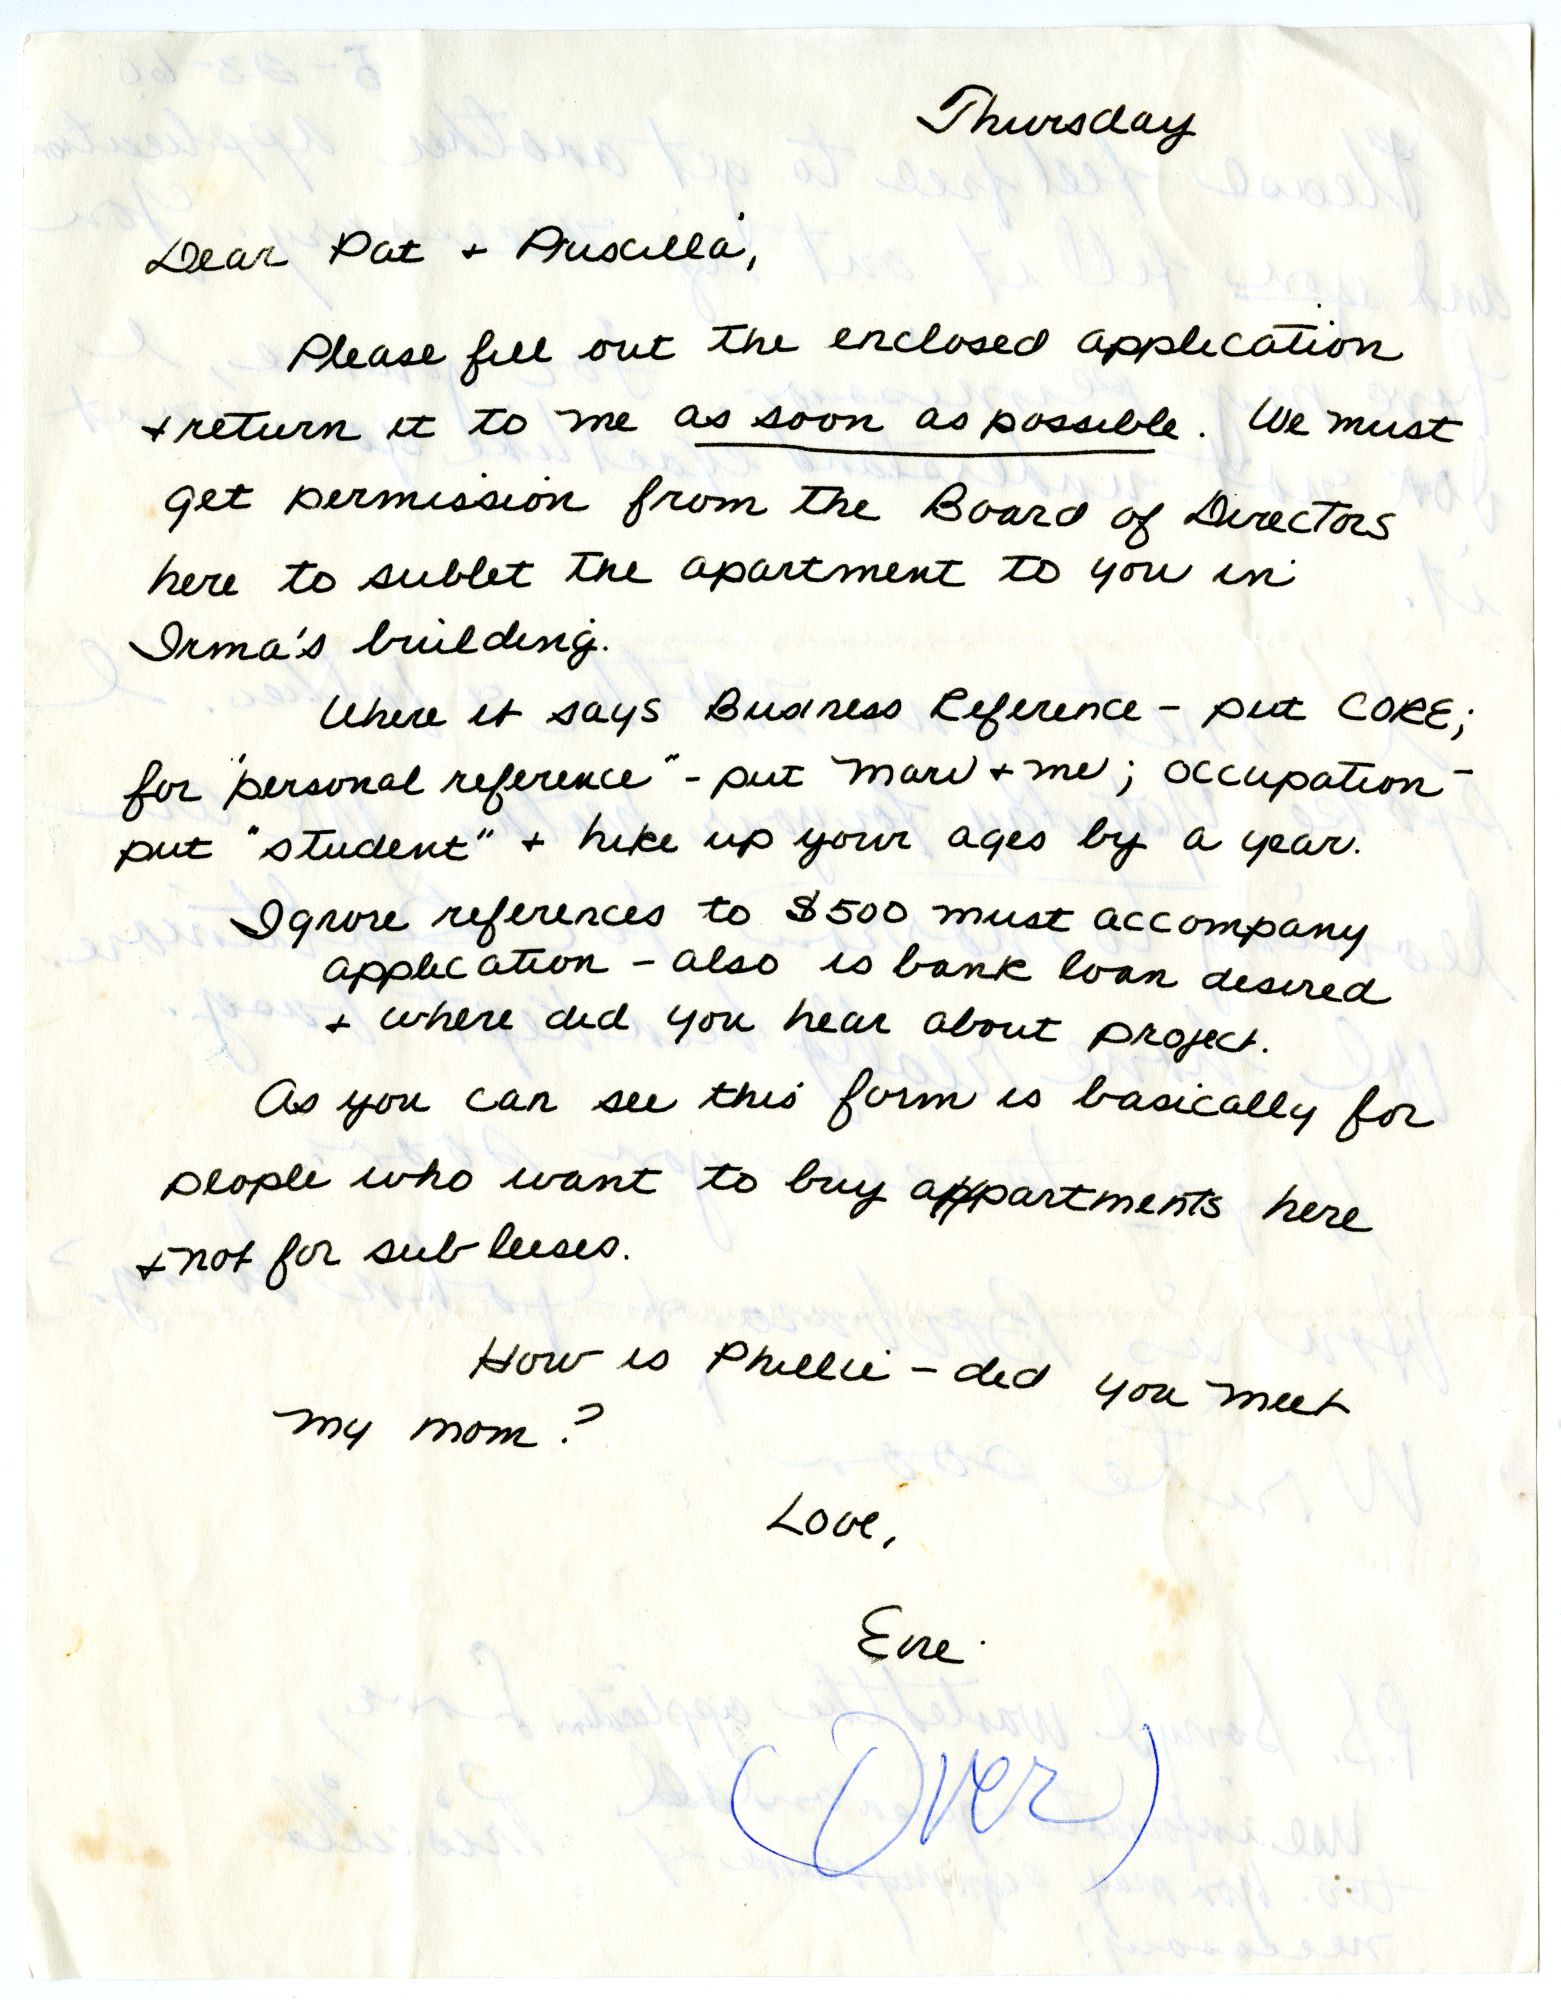 Thursday
Dear Pat + Priscilla,
Please fill out the enclosed application
+ return it to me as soon as possible. We must
get permission from the Board of Directors
here to sublet the apartment to you in
Irma's building.
Where it says Business Reference - put CORE;
for "personal reference" - put Marv + me; occupation -
put "student" + hike up your ages by a year.
Ignore references to $500 must accompany
application - also is bank loan desired
+ where did you hear about project.
As you can see this form is basically for
people who want to buy appartments here
+ not for subleeses.
How is Phillie - did you meet
my mom?
Love,
Eve
(Over)